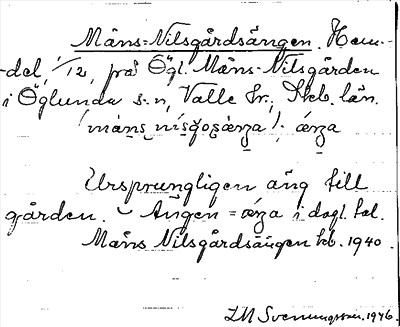 Måns-Nilsgårdsängen. Hem-
-del, 1/12, på Ögl. Måns-Nilsgården
i Öglunda s-n, Valle hr, Skb. län.
Ursprungligen äng till
gården. – Ängen = i dagl. tal.
Måns Nilsgårdsängen kb. 1940.
LM Svenungsson. 1946.